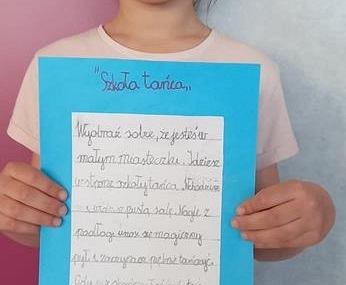 "Szkoła tańca"
Wyobraź sobie, że jesteś w
małym miasteczku. Idziesz
w stronę szkoły tańca. Wchodzisz
pustą salę. Nagle z
podłogi unosi się magiczny
pył i zaczynasz pięknie tańczyć.